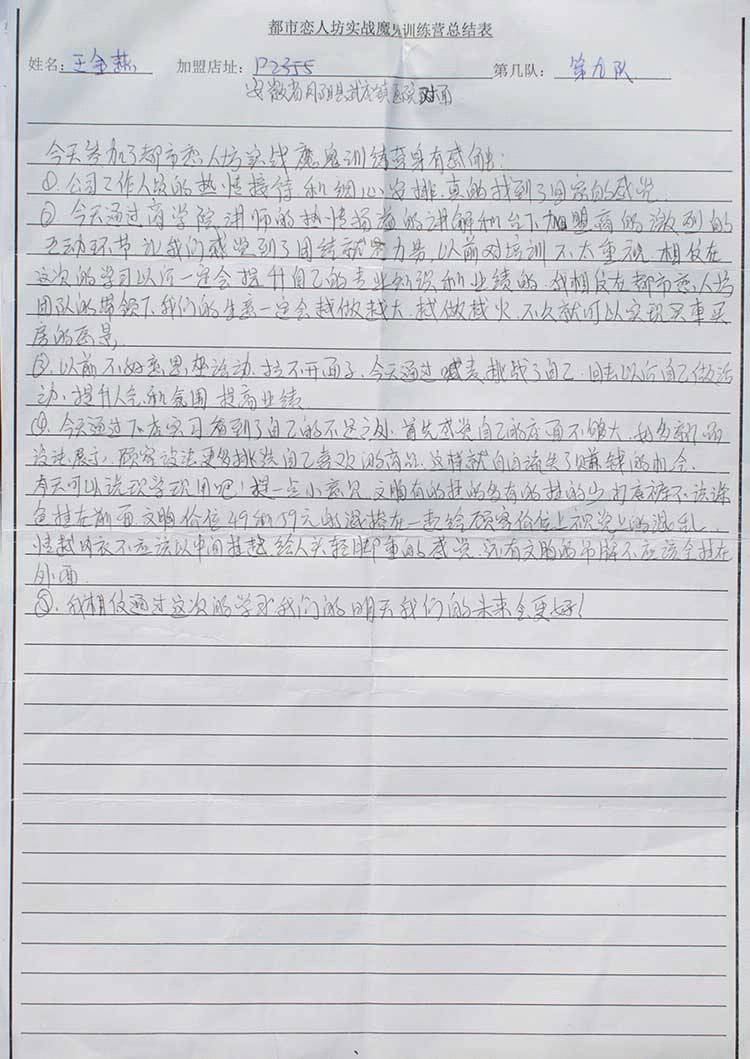 都市恋人坊实战魔鬼训练营总结表
姓名：王金 加盟店址：P2355 第几队：第九队
安徽省 县 对面
今天参加了都市恋人坊实战魔鬼训练营身有感触：
①.公司工作人员的热情接待和细心安排.真的找到了回家的感觉
② 今天通过商学院讲师的热情 的讲解和台下加盟商的激烈的
互动环节让我们感觉到了团结就是力量，以前对培训不太重视.相仗在
这次的学习以后一定会提升自己的专业知识和业绩的.我相仗在都市恋人坊
团队的带领下.我们的生意一定会越做越大.越做越火.不久就可以实现买車买
房的愿景
③.以前不好意思搞活动.拉不开面子.今天通过 挑战了自己.回去以后自己做活
动.提升人气和氛围 提高业绩
④.今天通过下店实习看到了自己的不足之处.首先感觉自己的店面不够大. 多新品
没法展示.顾客没法更多挑选自己喜欢的商品.这样就白白流失了赚钱的机会.
今天可以说现学现用吧！提一点小意见.文胸有的挂的多有的挂的少.打底裤不该深
色挂在前面文胸价位49和59元的混搭在一起给顾客价位上视觉上的混乱.
情趣内衣不应该以中间挂起.给人头轻脚重的感觉.还有文胸的吊牌不应该全挂在
外面
⑤.我相仗通过这次的学习我们的明天我们的未来会更好！